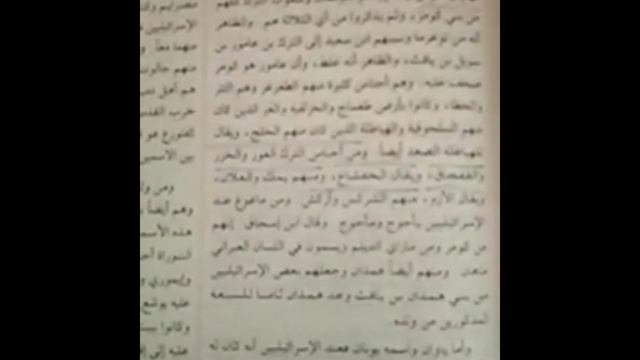 من بني كومر، ولم يذكروا من أي الثلاثة هم. والظاهر
أنه من توغرما ونسبهم ابن سعيد إلى الترك بن عامور بن
سويل بن يافث، والظاهر أنه غلط، وأن عامور هو كومر
صحف عليه. وهم أجناس كثيرة منهم الطغرغر وهم التتر
والخطا، وكانوا بأرض طغماج والخزلقية والغز الذين كان
منهم السلجوقية والهياطلة الذين كان منهم الخلج، ويقال
للهياطلة الصغد أيضاً. ومن أجناس الترك الغور والخزر
والقفجاق، ويقال الخفشاج، ومنهم يمك والعلان،
ويقال الأزو، منهم الشركس وأزكش. ومن ماغوغ عند
الإسرائيليين يأجوج ومأجوج. وقال ابن إسحاق: إنهم
من كومر ومن ماذاي الديلم ويسمون في اللسان العبراني
ماهان. ومنهم أيضاً همذان وجعلهم بعض الإسرائيليين
من بني همذان بن يافث وعد همذان ثامناً للسبعة
المذكورين من ولده.
وأما ياوان واسمه يونان فعند الإسرائيليين أنه كان له
مصرايم
الإسرائيليين
منهما معاً
منهم جالوت
هم أهل
حرب
كفتورع هو
بين الاسمين
ومن
وهم أيضاً
هذه الأسم
التوراة
وايموري
عليه يوشع
وكانوا
عليه إلى